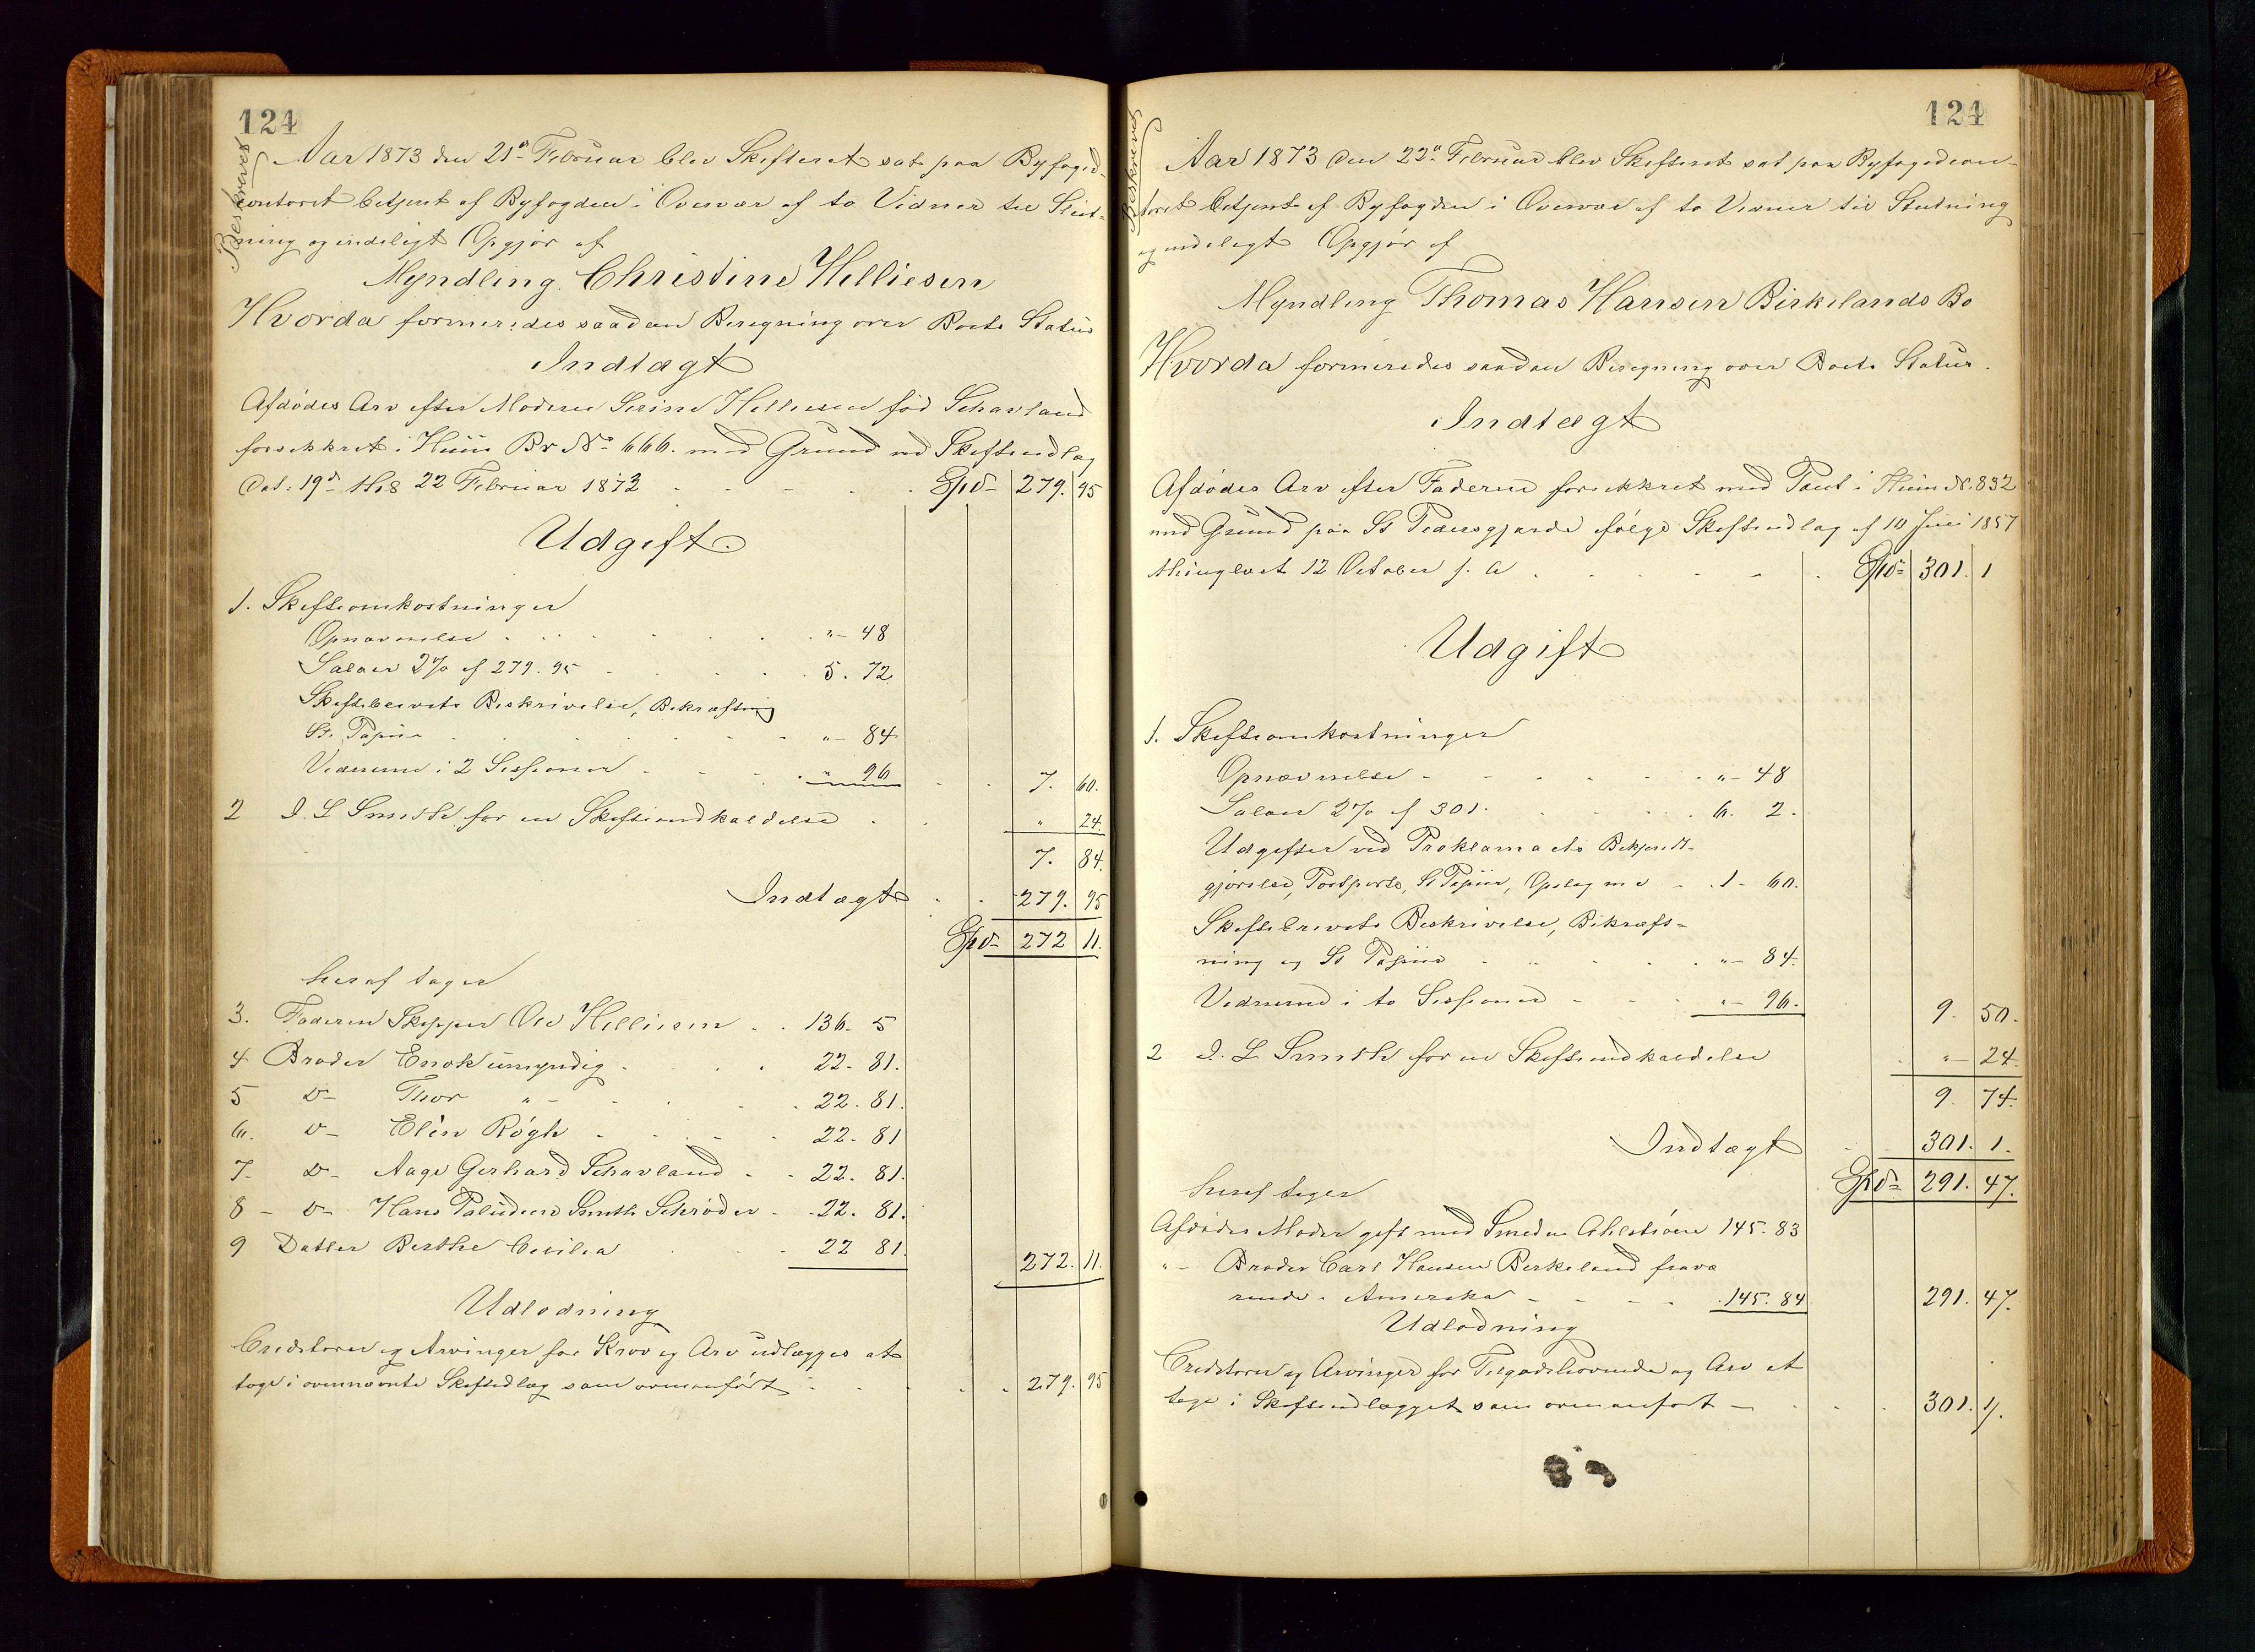 124
Beskrevet
Aar 1873 den 21de Februar blev Skifteret sat paa Byfoged-
contoret betjent af Byfogden i Overvær af to Vidner til Slut-
ning og endeligt Opgjør af
Myndling Christine Helliesen
Hvorda formeredes saadan Beregning over Boets Status
Indtægt
Afdødes Arv efter Moderen Serine Helliesen fød Schavland
forsikkret i Huus Br No 666. med Grund ved Skifteudlæg
Dat: 19d ths 22 Februar 1872 Spd 279. 95
Udgift.
1. Skifteomkostninger
Opnævnelse " - 48
Salair 2% af 279. 95 5. 72
Skiftebrevets Beskrivelse, Bekræftning
St. Papiir " - 84
Vidnerne i 2 Sessioner " 96 7. 60.
2 I. L Smith for en Skifteindkaldelse " 24.
7. 84.
Indtægt 279. 95
Spd 272 11.
heraf tager
3. Faderen Skipper Ole Helliesen 136- 5
4 Broder Enok umyndig 22- 81.
5 D- Thor " - 22. 81.
6. D- Elen Røgh 22- 81
7- D- Aage Gerhard Schavland 22. 81.
8 - D- Hans Paludan Smith Schrøder 22. 81.
9 Datter Berthe Cecilia 22 81. 272. 11.
Udlodning
Creditorer og Arvinger for Krav og Arv udlægges at
tage i ovennævnte Skifteudlæg som ovenanført 279. 95
124
Beskrevet
Aar 1873 den 22de Februar blev Skifteret sat paa Byfogedcon-
toret betjent af Byfogden i Overvær af to Vidner til Slutning
og endeligt Opgjør af
Myndling Thomas Hansen Birkelands Bo
Hvorda formeredes saadan Beregning over Boets Status.
Indtægt
Afdødes Arv efter Faderen forsikkret med Pant i Huus No. 832
med Grund paa St Pedersgjerde ifølge Skifteudlæg af 10 Juni 1857
thinglæst 12 October s. A Spd 301. 1
Udgift
1. Skifteomkostninger
Opnævnelse - " - 48
Salair 2% af 301. 6. 2.
Udgifter ved Proklamaets Bekjendt-
gjørelse, Postporto, St Papiir, Opslag m v 1- 60.
Skiftebrevets Beskrivelse, Bekræft-
ning og St Papiir " - 84.
Vidnerne i to Sessioner " - 96. 9. 50.
2 I. L Smith for en Skifteindkaldelse " - 24.
9. 74.
Indtægt 301. 1.
Spd 291. 47.
heraf tager
Afdødes Moder gift med Smeden Ahlstrøm 145. 83
" - Broder Carl Hansen Birkeland fravæ
rende i Amerika 145. 84 291. 47.
Udlodning
Creditorer og Arvinger for Tilgodehavende og Arv at
tage i Skifteudlægget som ovenanført - 301. 1.